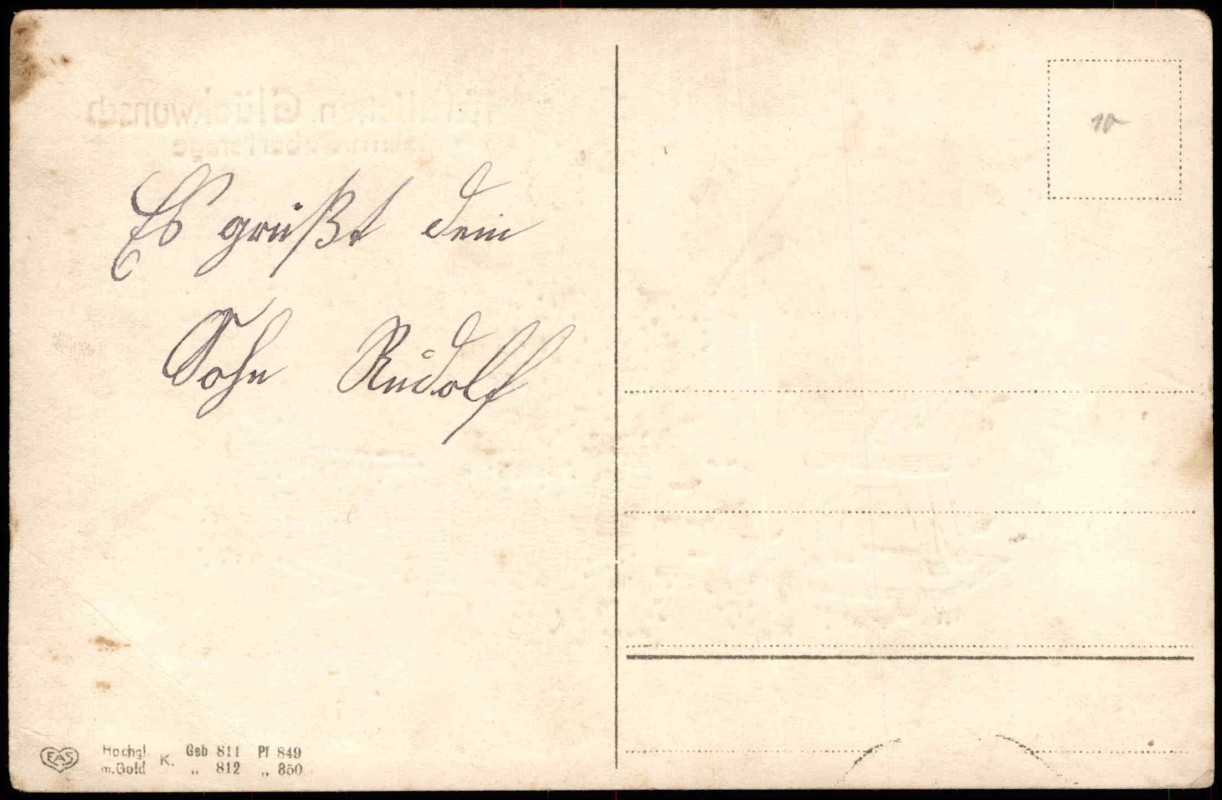 Glückwunsch
Es grüßt dein
Sohn Rudolf
10
EAS
Hochgl. K. Geb 811 Pf 849
m. Gold „ 812 „ 850